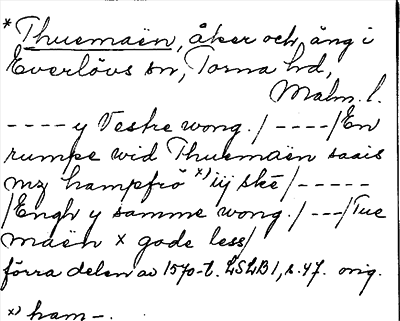 * Thuemaën, åker och äng i
Everlövs sn, Torna hd,
Malm. l.
---- y Vestre wong. / ----/En
rumpe wid Thuemaën saais
mz hampfrö x) iij skė/-----
/Engh y samme wong. / ---/Tue
maën x gode less/
förra delen av 1570-t. LSLB 1, s. 47. orig.
x) ham-.